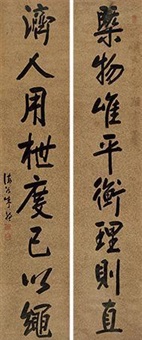 槩物唯平衡理則直
濟人用枻度已以繩